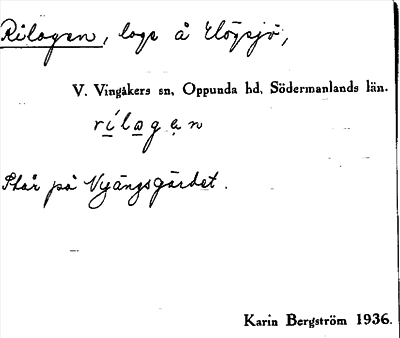 Rilogen, loge å Elögsjö,
V. Vingåkers sn, Oppunda hd, Södermanlands län.
rílogen
Står på Nyängsgärdet.
Karin Bergström 1936.